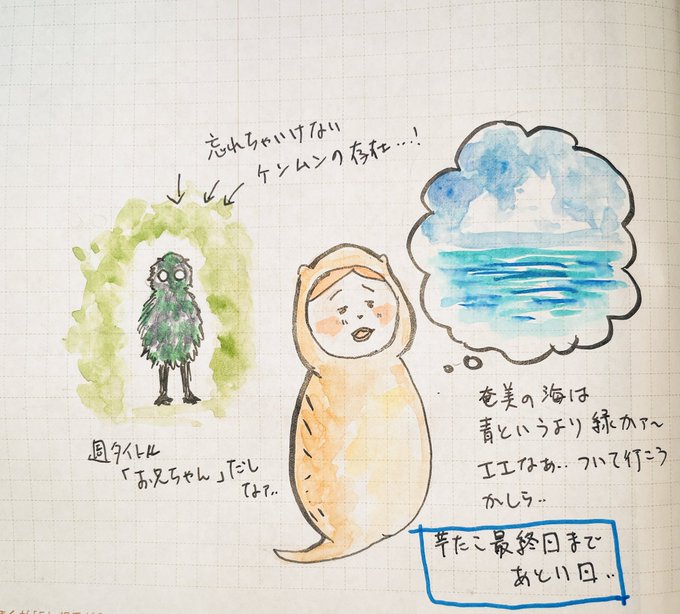 忘れちゃいけない
ケンムンの存在…!
週タイトル
「お兄ちゃん」だし
なァ..
奄美の海は
青というより緑かァ〜
エエなぁ..ついて行こう
かしら..
芋たこ最終日まで
あとい日..